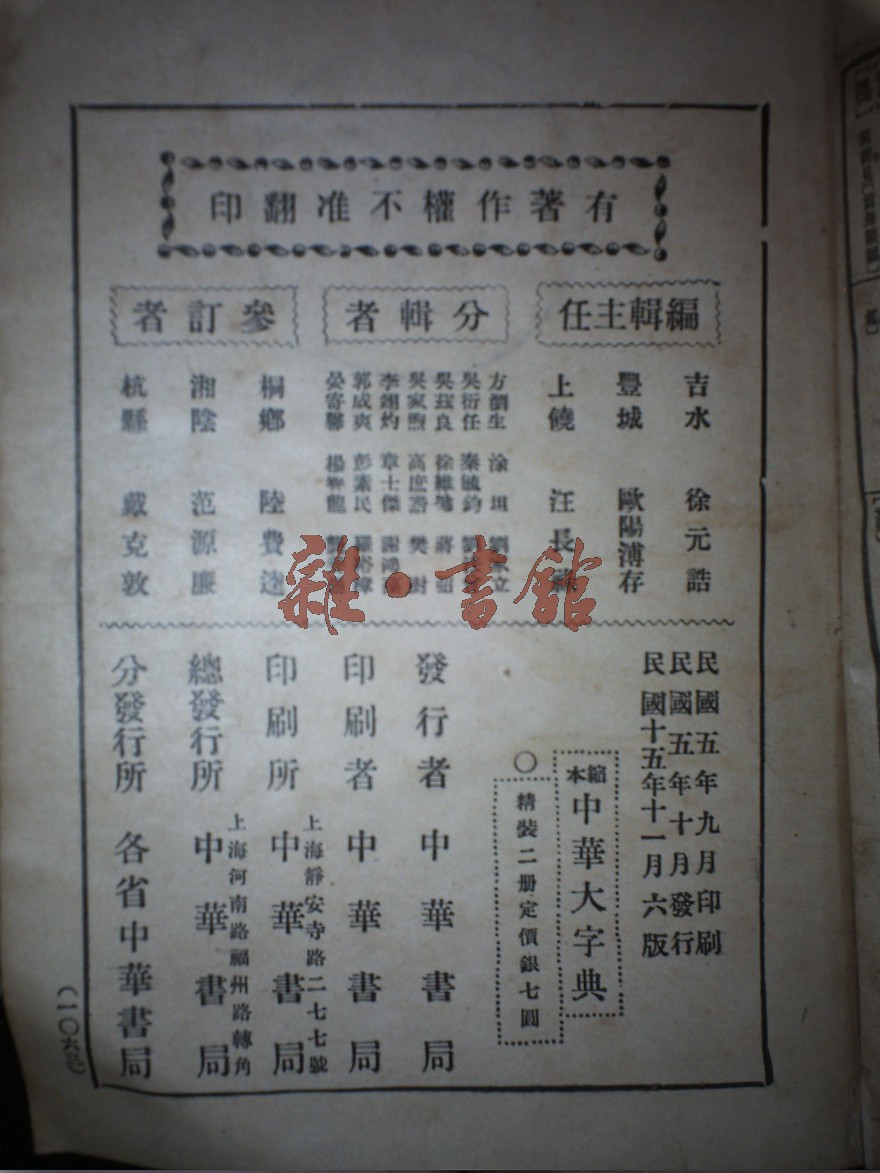 有著作權不准翻印
編輯主任
吉水 徐元誥
豐城 歐陽溥存
上饒 汪長
分輯者
方瀏生 涂 劉 立
吳衍任 秦毓鈞
吳茲良 徐維 蔣
吳家煦 高 樊
李翊灼 章士傑 謝
郭成爽 彭素民 羅裕
寄 楊
參訂者
桐鄉 陸費逵
湘陰 范源廉
杭縣 戴克敦
民國五年九月印刷
民國五年十月發行
民國十五年十一月六版
縮本中華大字典
○精裝二册定價銀七圓
發行者 中華書局
印刷者 中華書局
上海靜安寺路二七七號
印刷所 中華書局
上海河南路福州路轉角
總發行所 中華書局
分發行所 各省中華書局
雜·書館